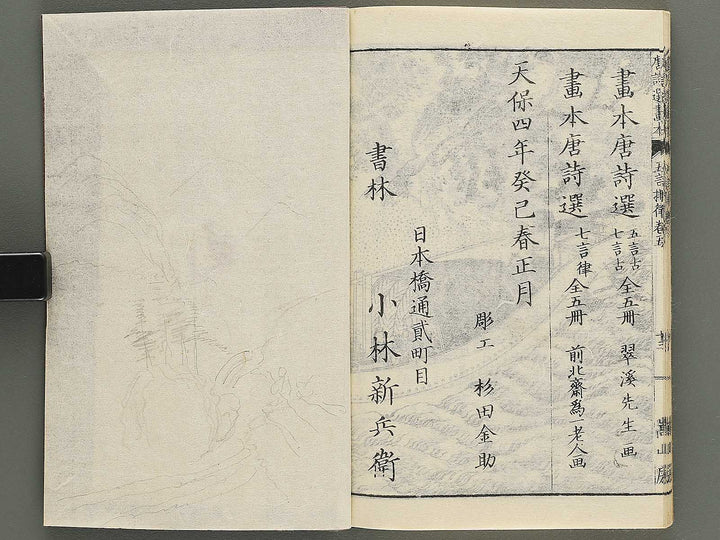 唐詩選畫本 五言排律 卷五
嵩山房
畫本唐詩選 五言古 七言古 全五冊 翠溪先生画
畫本唐詩選 七言律 全五冊 前北齋為一老人画
天保四年癸巳春正月
彫工 杉田金助
日本橋通貳町目
書林 小林新兵衛